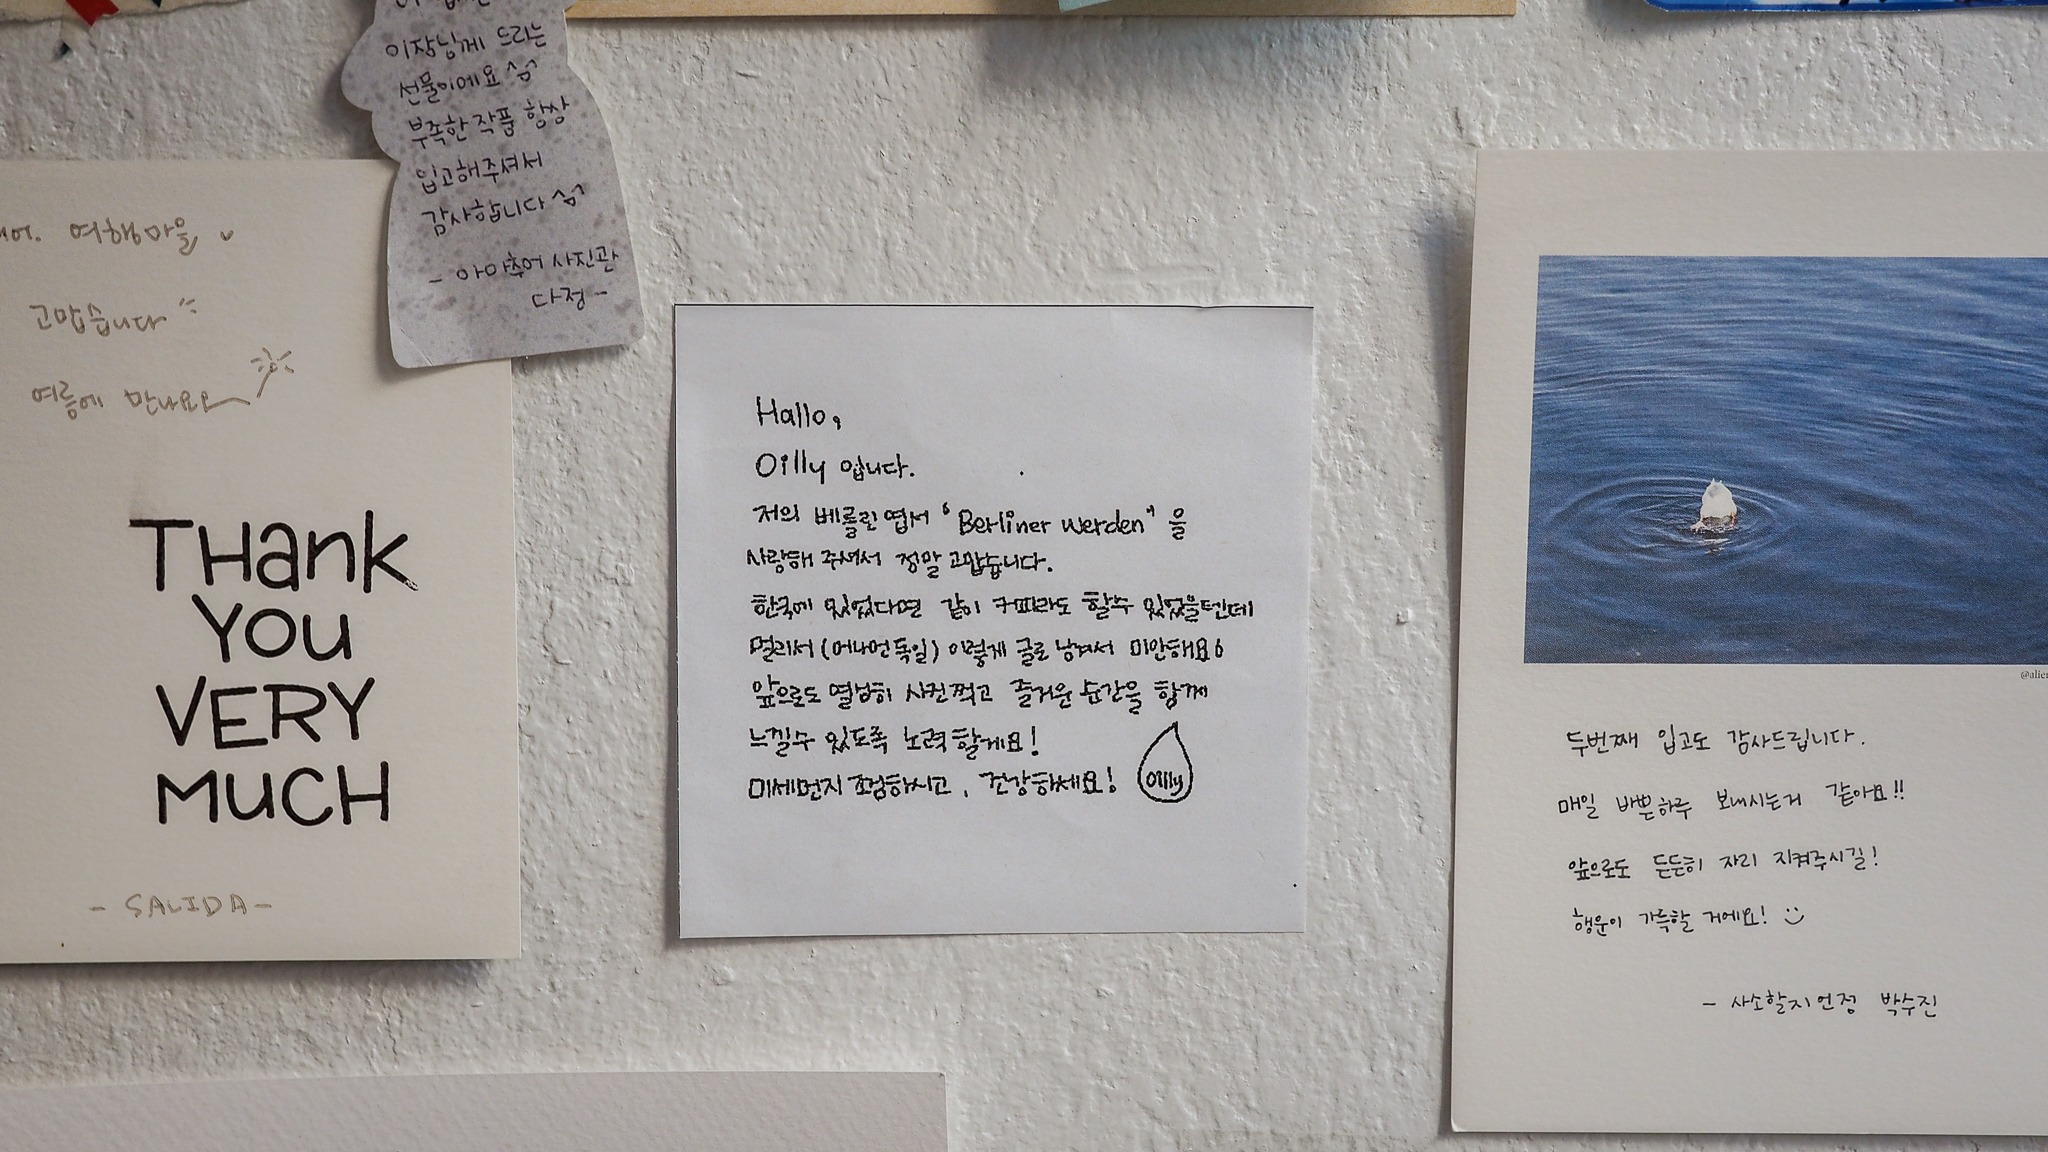 이장님께 드리는
선물이에요 ^^
부족한 작품 항상
입고해주셔서
감사합니다 ^^
- 아야추어 사진관
다정 -
여행마을
고맙습니다
여름에 만나요
THank
YOU
VERY
MUCH
- SALIDA -
Hallo,
Oilly 입니다.
저의 베를린 엽서 "Berliner werden" 을
사랑해 주셔서 정말 고맙습니다.
한국에 있었다면 같이 커피라도 할수 있었을텐데
멀리서 (머나먼 독일) 이렇게 글로 남겨서 미안해요
앞으로도 열심히 사진찍고 즐거운 순간을 함께
느낄수 있도록 노력할게요!
미세먼지 조심하시고, 건강하세요!
oilly
@alie
두번째 입고도 감사드립니다.
매일 바쁜하루 보내시는거 같아요!!
앞으로도 든든히 자리 지켜주시길!
행운이 가득할 거에요! :)
- 사소할지언정 박수진